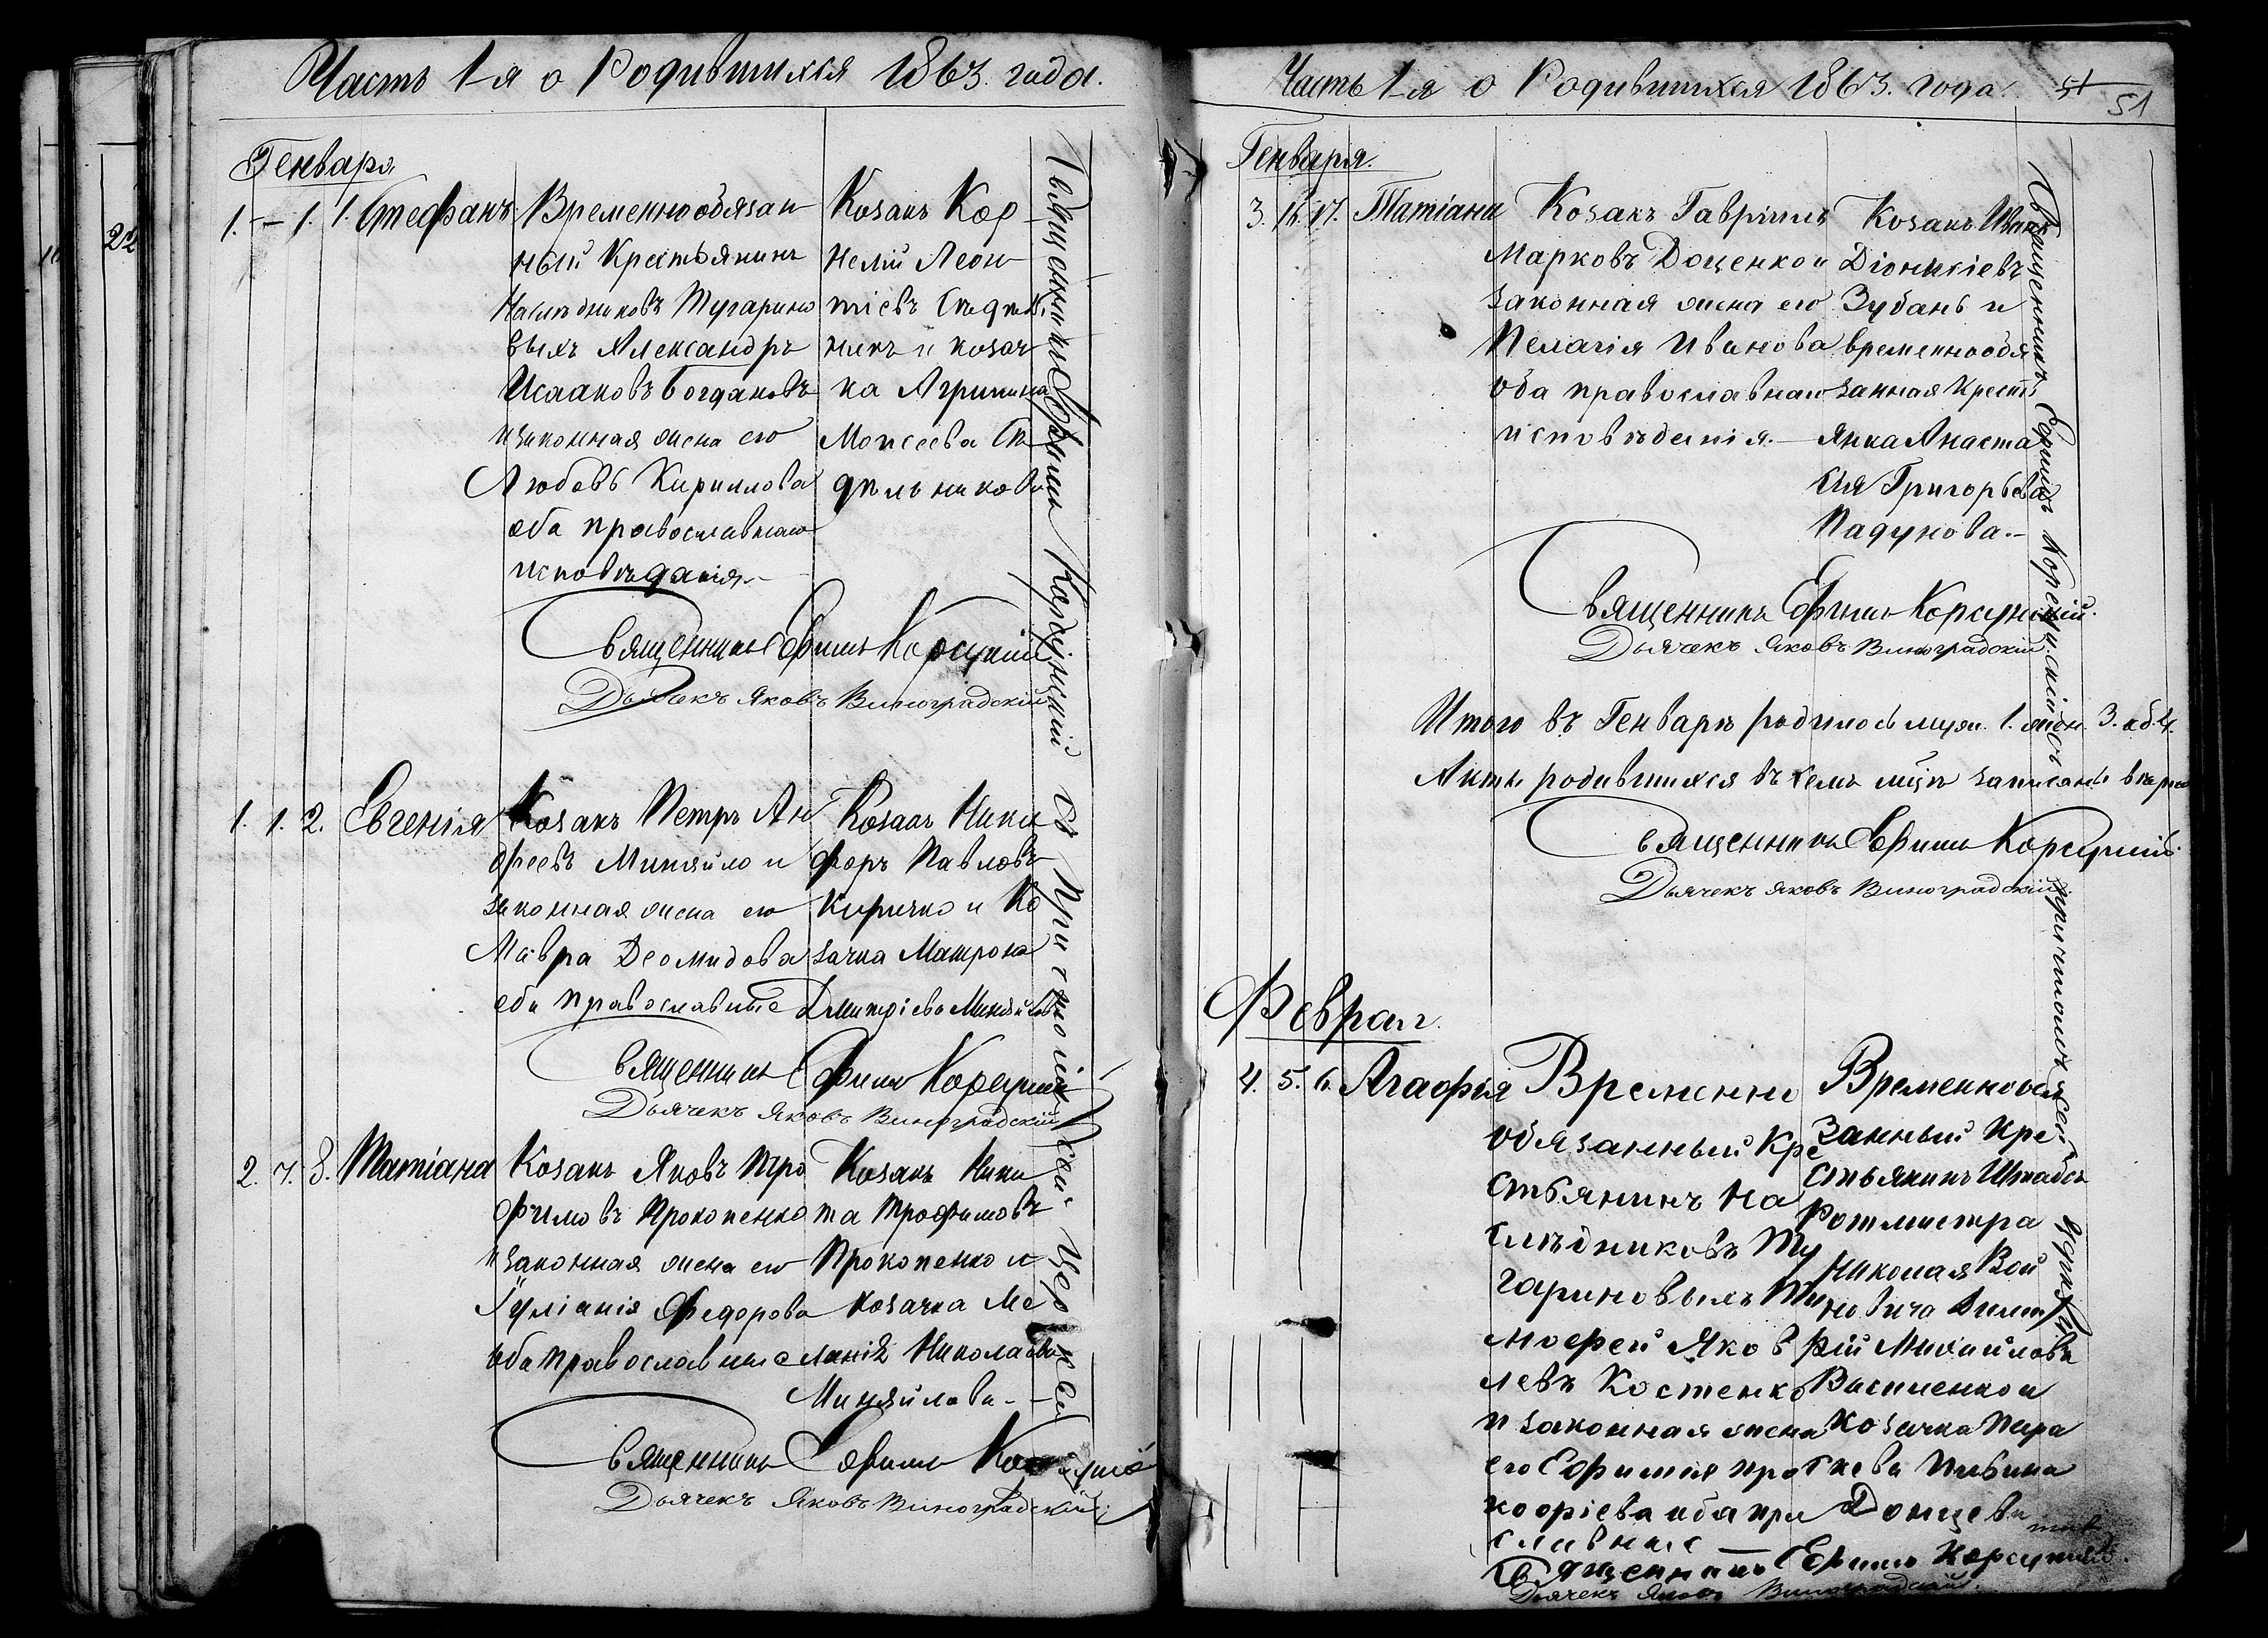 Часть 1-я о Родившихся 1863. года.
Генваря
1. – 1. 1. Стефанъ Временнообязан
ный Крестьянинъ
Наслѣдниковъ Тугарино
выхъ Александръ
Исааковъ Богдановъ
и законная жена его
Любовь Кириллова
оба православнаго
исповѣданія.–
Козакъ Кор
нелій Леон
тіевъ
никъ и козач
ка Агрипина
Моисеева Сѣ
дѣльникова
Священникъ Ефимъ Корсунскій
Дьячекъ Яковъ Виноградскій
1. 1. 2. Евгенія Козакъ Петръ Ан
дреевъ Миняйло и
законная жена его
Мавра Деомидова
оба православные
Козакъ Ники
форъ Павловъ
Киричко и Ко
зачка Матрона
Дмитріева Миняйлова
Священникъ Ефимъ Корсунскій
Дьячекъ Яковъ Виноградскій
2. 7. 8. Татіана Козакъ Яковъ Тро
фимовъ Прокопенко
и законная жена его
Іуліанія Федорова
оба православные
Козакъ Ники
та Трофимовъ
Прокопенко и
козачка Ме
ланія Николаева
Миняйлова. –
Священникъ Ефимъ Корсунскій
Дьячекъ Яковъ Виноградскій
Священникъ Ефимъ Корсунскій съ Причтомъ сей Церкви
Часть 1-я о Родившихся 1863. года. 51
51
Генваря.
3. 16. 17. Татіана Козакъ Гавріилъ
Марковъ Доценко и
законная жена его
Пелагія Иванова
оба православнаго
исповѣданія.–
Козакъ Иванъ
Діонисіевъ
Зубань и
временнообя
занная Кресть
янка Анаста
сія Григорьева
Падунова.–
Священникъ Ефимъ Корсунскій.
Дьячекъ Яковъ Виноградскій
Итого въ Генварѣ родилось муж. 1. жен. 3. об. 4.
Акты родившихся въ семъ мцѣ записаны вѣрно
Священникъ Ефимъ Корсунскій
Дьячекъ Яковъ Виноградскій
Феврал.
4. 5. 6. Агафія Временно
обязанный Кре
стьянинъ На
слѣдниковъ Ту
гариновыхъ Ти
мофей Яков
левъ Костенко
и законная жена
его Ефимія Про
кофіева оба пра
славные
Временнообя
занный Кре
стьянинъ Штабсъ
Ротмистра
Николая Вои
новича Дмит
рій Михайловъ
Василенко и
козачка Пара
скева
Донцева
Священникъ Ефимъ Корсунскій.
Дьячекъ Яковъ Виноградскій.
Священникъ Ефимъ Корсунскій съ причтомъ сей церкви.